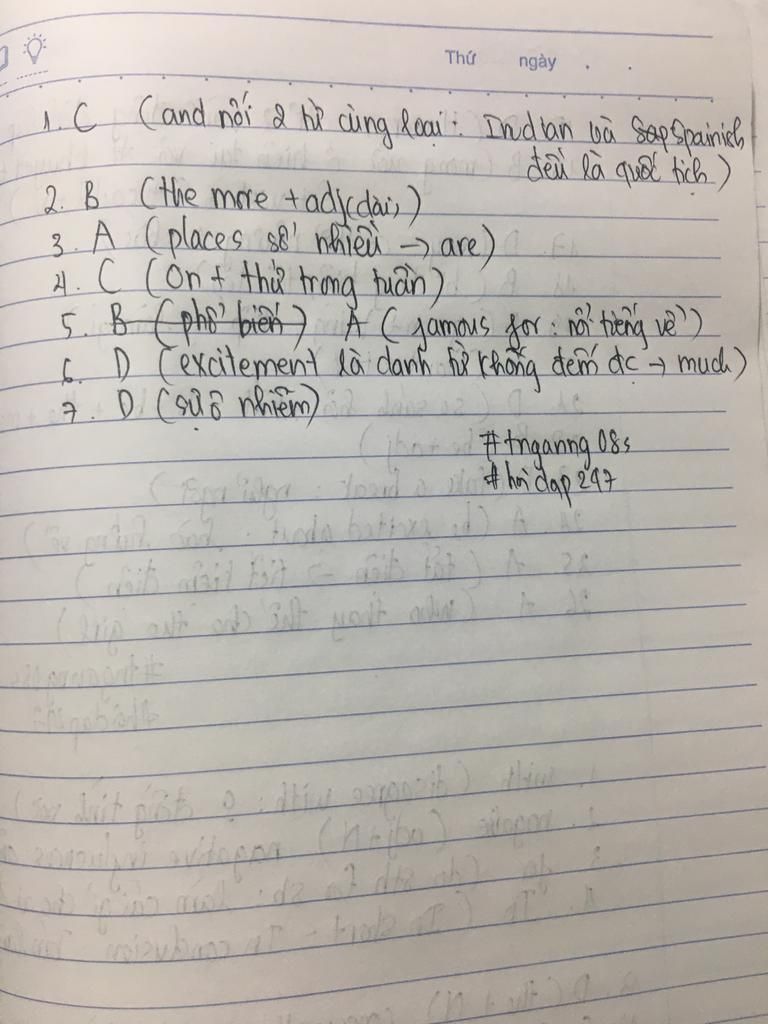 Thứ ngày . .
1. C (and nối 2 từ cùng loại: Indian và Spainish
đều là quốc tịch)
2. B (the more + adj(dài))
3. A (places số nhiều → are)
4. C (On + thứ trong tuần)
5. B (phổ biến) A (famous for: nổi tiếng về)
6. D (excitement là danh từ không đếm đc → much)
7. D (sự ô nhiễm)
#tnganng08s
#hoidap247